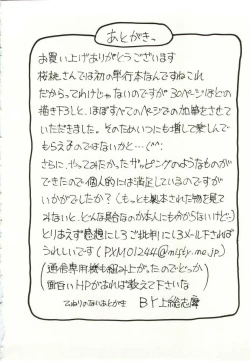 あとがきっ
お買い上げありがとうございます
桜桃さんでは初の単行本なんですねこれ
だからってわけじゃないのですが30ページほどの
描き下ろしと、ほぼすべてのページでの加筆をさせて
いただきました。そのためいつにも増して楽しんで
もらえるのではないかと…(^^;
さらに、やってみたかったザッピングのようなものが
できたので個人的には満足しているのですが
いかがでしたか?(もっとも製本された物を見て
みないと、どんな具合なのか本人にも分からないけど…)
とりあえず感想にしろご批判にしろメール下されば
うれしいです(PXM01244@nifty.ne.jp)
(通信専用機も組み上がったのでとっか
面白いHPがあれば教えて下さいな)
てぬりのないあとがき By 上総志摩